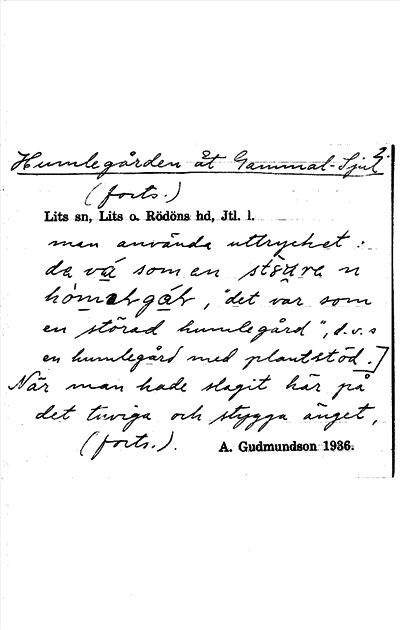 Humlegården åt Gammal-Sjul 2.
(forts.)
Lits sn, Lits o. Rödöns hd, Jtl. l.
man använda uttrycket :
da vá som en
"det var som
en störad humlegård", d.v.s
en humlegård med plantstöd.]
När man hade slagit här på
det tuviga och stygga änget,
(forts.). A. Gudmundson 1936.